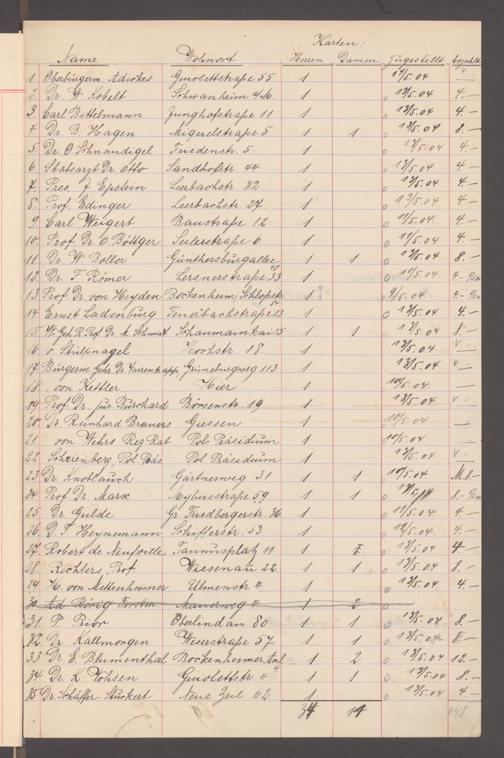 Karten:
Name Wohnort Herren Damen Zugestellt bezahlt
1. Oberbürgerm. Adickes Guiollettstraße 55 1 14/5.04
2. Dr. W. Kobelt Schwanheim a/M. 1 0 13/5.04 4.-
3. Carl Bittelmann Junghofstraße 11 1 0 13/5.04 4.-
4. Dr. B. Hagen Miquelstraße 5 1 1 0 13/5.04 8.-
5. Dr. O. Schnaudigel Friedenstr. 5 1 0 13/5.04 4.-
6. Stabsarzt Dr. Otto Sandhofstr. 44 1 0 13/5.04 4.-
7. Pres. J. Epstein Leerbachstr. 32 1 0 13/5.04 4.-
8. Prof. Edinger Leerbachstr. 27 1 0 13/5.04 4.-
9. Carl Weigert Baustraße 12 1 0 11/5.04 4.-
10. Prof. Dr. O. Böttger Seilerstraße 6 1 0 14/5.04 4.-
11. Dr. W. Boller Günthersburgallee 1 1 0 13/5.04 8.-
12. Dr. F. Römer Lersnerstraße 33 1 0 14/5.04 4.-
13. Prof. Dr. von Heyden Bockenheim, Schloßstr. 1 9/5.04 4.-
14. Ernst Ladenburg Feuerbachstraße 13 1 0 13/5.04 4.-
15. W. Geh. R. Prof. Dr. M. Schmidt Schaumainkai 15 1 1 0 13/5.04 8.-
16. v. Stülpnagel Hochstr. 18. 1 13/5.04
17. Bürgerm. Geh. Dr. Varrentrapp Grüneburgweg 113 1 13/5.04 -
18. von Kettler Hier 1 10/5.04 -
19. Prof. Dr. jur. Burchard Börsenstr. 19 1 13/5.04
20. Dr. Reinhard Brauns Giessen 1 10/5.04 -
21. von Wehrs, Reg Rat Pol. Präsidium 1 10/5.04 -
22. Scherenberg, Pol. Präs. Pol. Präsidium 1 13/5.04 -
23. Dr. Knoblauch Gärtnerweg 31 1 1 10/5.04 M.8.-
24. Prof. Dr. Marx Myliusstraße 59 1 1 0 8.-
25. Dr. Gulde Gr. Friedbergerstr. 36 1 0 13/5.04 4.-
26. D. F. Heynemann Schifferstr. 53 1 0 13/5.04 4.-
27. Robert de Neufville Taunusplatz 11 1 0 13/5.04 4.-
28. Richters, Prof. Wiesenau 22. 1 1 0 13/5.04 8.-
29. H. von Mettenheimer Ulmenstr. 4. 1 0 13/5.04 4.-
30. Ad. Mauerweg 4. 1 2 0
31. P. Prior Oberlindau 80 1 1 0 13/5.04 8.-
32. Dr. Kallmorgen Weserstraße 57 1 1 0 13/5.04
33. Dr. E. Blumenthal Bockenheimer Anl. 1 2 0 13/5.04 12.-
34. Dr. K. Vohsen Guiollettstr. 4 1 1 0 13/5.04 8.-
35. Dr. Schäffer-Stuckert Neue Zeil 62. 1 0 13/5.04 4.-
34 14 148